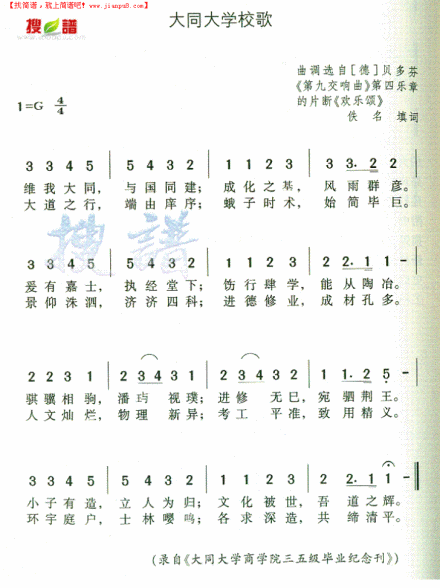 【找简谱，就上简谱吧】www.jianpu8.com
搜谱
大同大学校歌
曲调选自[德]贝多芬
《第九交响曲》第四乐章
的片断《欢乐颂》
佚名 填词
1=G 4/4
3 3 4 5 | 5 4 3 2 | 1 1 2 3 | 3 3· 2 2 |
维我大同， 与国同建； 成化之基， 风雨群彦。
大道之行， 端由庠序； 蛾子时术， 始简毕巨。
搜谱
3 3 4 5 | 5 4 3 2 | 1 1 2 3 | 2 2· 1 1 - |
爰有嘉士， 执经堂下； 饬行肆学， 能从陶冶。
景仰洙泗， 济济四科； 进德修业， 成材孔多。
2 2 3 1 | 2 3 4 3 1 | 2 3 4 3 2 | 1 2 5 |
骐骥相驹， 潘玙 视璞； 进修 无已， 宛驷荆王。
人文灿烂， 物理 新异； 考工 平准， 致用精义。
3 3 4 5 | 5 4 3 2 | 1 1 2 3 | 2 2· 1 1 - ‖
小子有造， 立人为归； 文化被世， 吾道之辉。
环宇庭户， 士林嘤鸣； 各求深造， 共缔清平。
(录自《大同大学商学院三五级毕业纪念刊》)